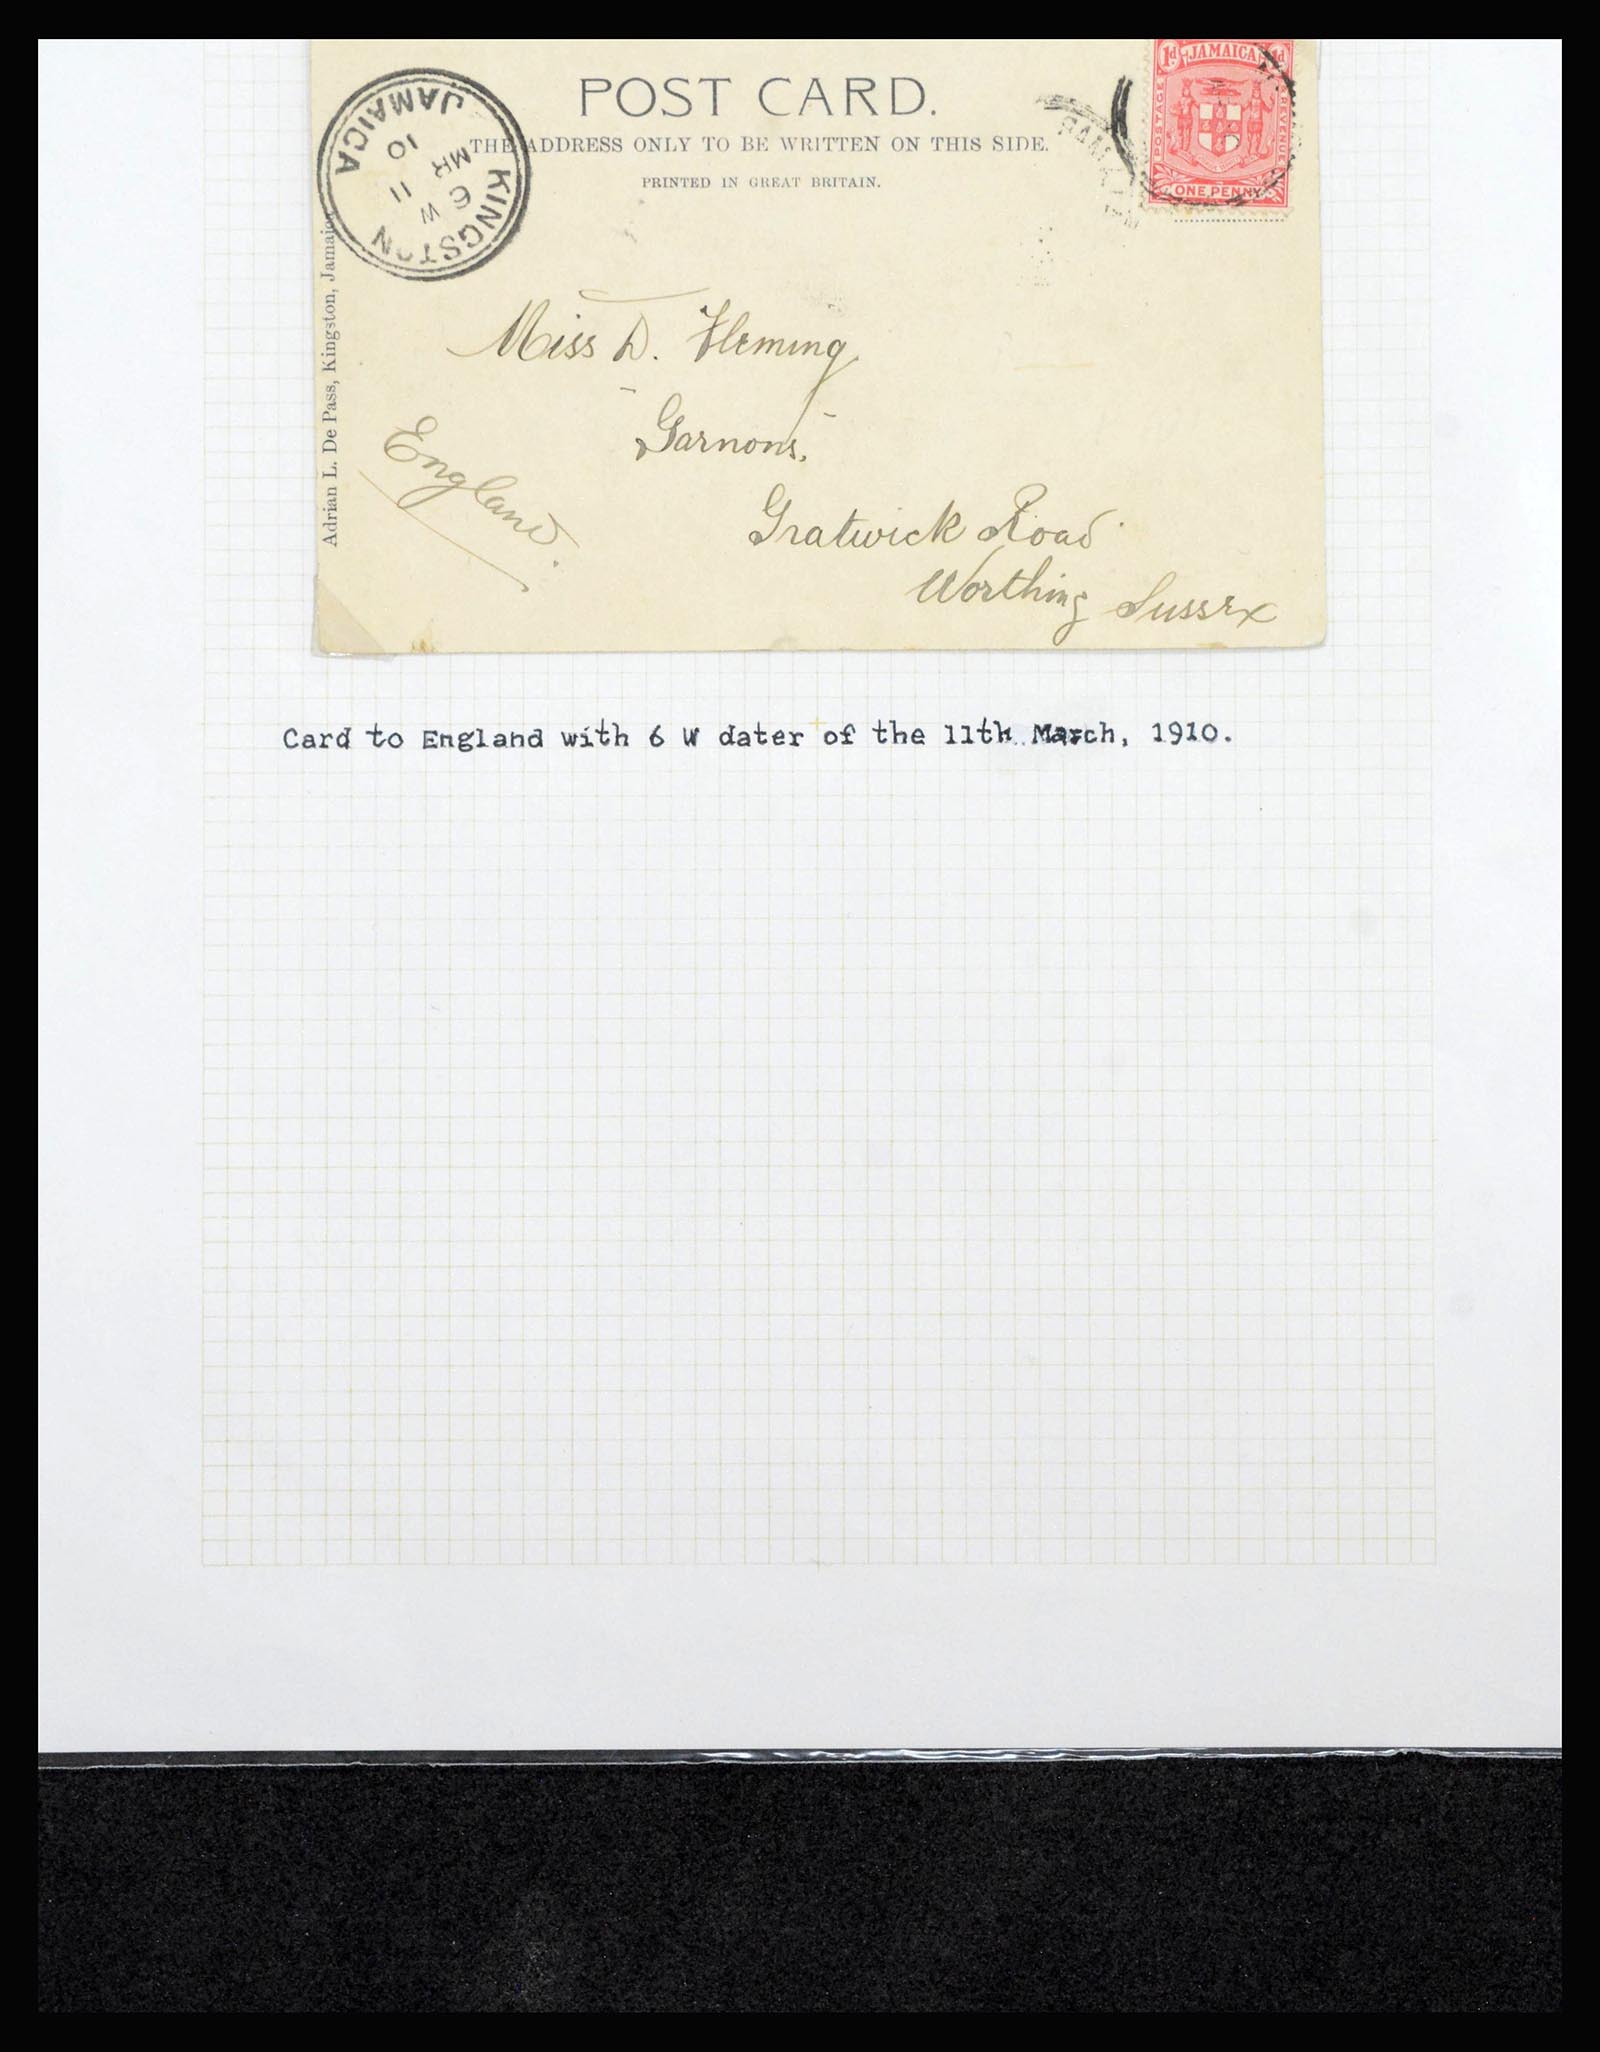 POST CARD.
THE ADDRESS ONLY TO BE WRITTEN ON THIS SIDE.
PRINTED IN GREAT BRITAIN.
1d JAMAICA 1d
POSTAGE
REVENUE
ONE PENNY
KINGSTON
JAMAICA
6 W
MR 11
10
Adrian L. De Pass, Kingston, Jamaica.
Miss D. Fleming
"Garnons."
Gratwick Road
Worthing Sussex
England.
Card to England with 6 W dater of the 11th March, 1910.